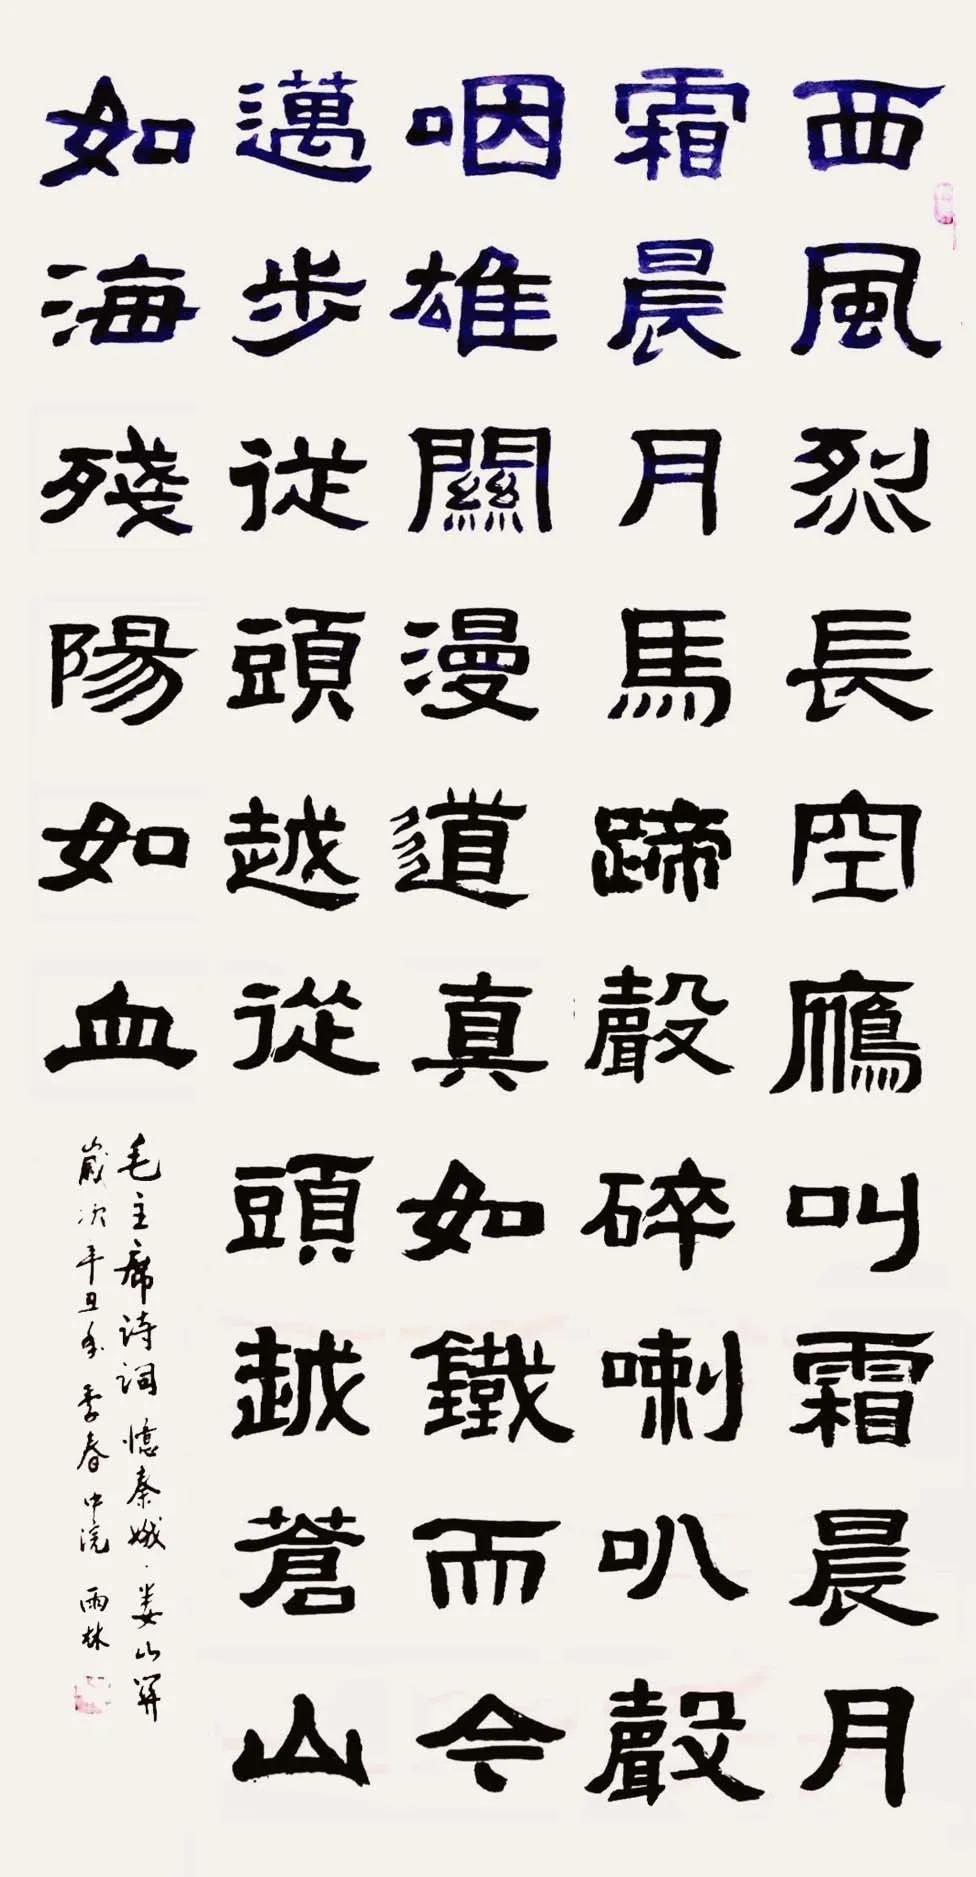 西風烈長空鴈叫霜晨月
霜晨月馬蹄聲碎喇叭聲
咽雄關漫道真如鐵而今
邁步從頭越從頭越蒼山
如海殘陽如血
毛主席诗词憶秦娥·娄山關
歲次辛丑年季春中浣雨林